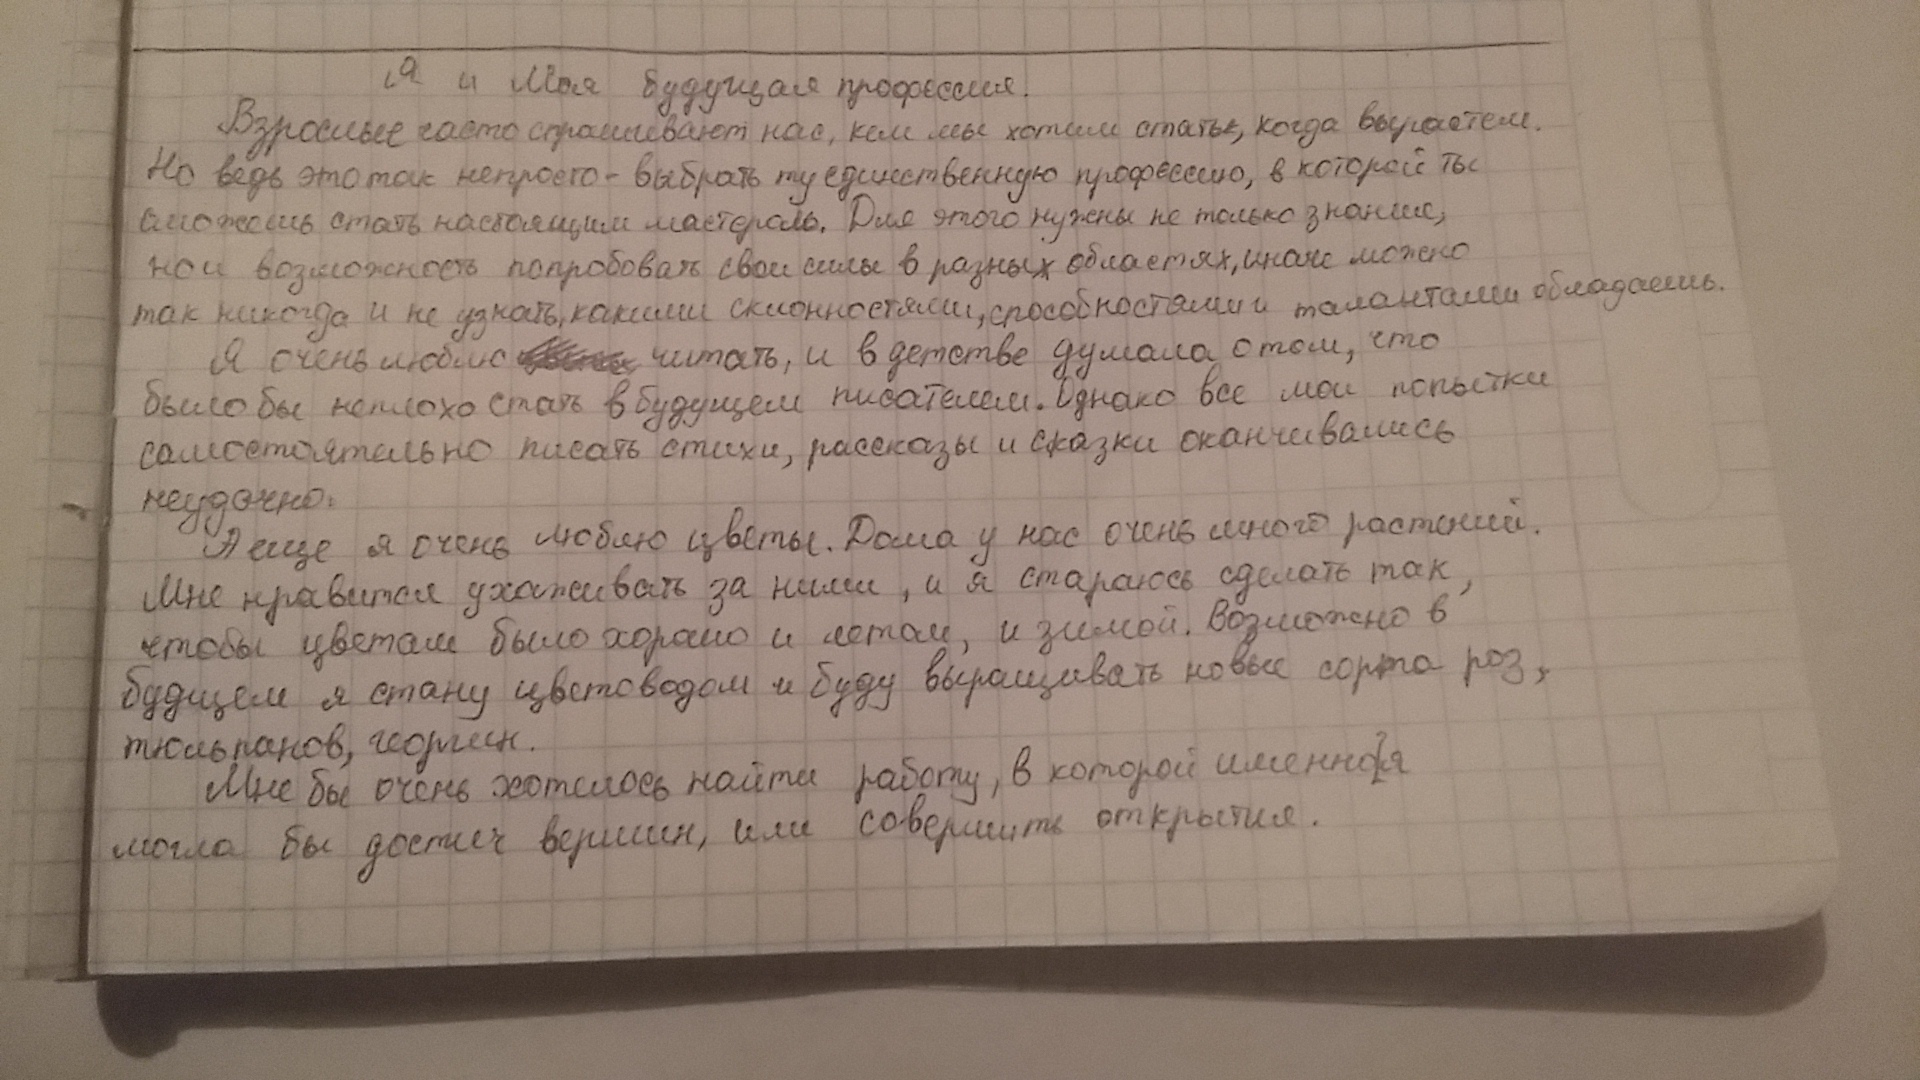 Я и Моя будущая профессия.
Взрослые часто спрашивают нас, кем мы хотим стать, когда вырастем.
Но ведь это так непросто - выбрать ту единственную профессию, в которой ты
сможешь стать настоящим мастером. Для этого нужны не только знания,
но и возможность попробовать свои силы в разных областях, иначе можно
так никогда и не узнать, какими склонностями, способностями и талантами обладаешь.
Я очень люблю читать, и в детстве думала о том, что
было бы неплохо стать в будущем писателем. Однако все мои попытки
самостоятельно писать стихи, рассказы и сказки оканчивались
неудачно.
А еще я очень люблю цветы. Дома у нас очень много растений.
Мне нравится ухаживать за ними, и я стараюсь сделать так,
чтобы цветам было хорошо и летом, и зимой. Возможно в
будущем я стану цветоводом и буду выращивать новые сорта роз,
тюльпанов, георгин.
Мне бы очень хотелось найти работу, в которой именно я
могла бы достич вершин, или совершить открытия.